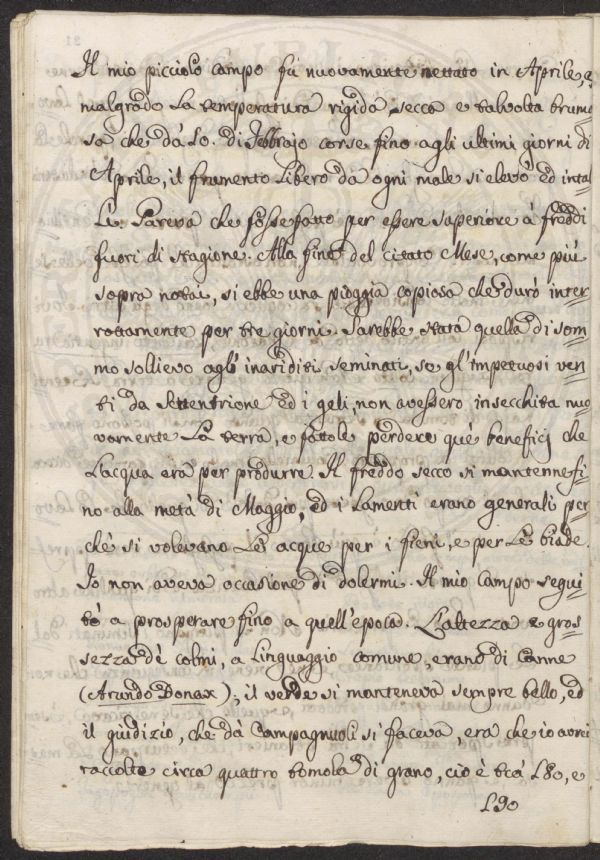 Il mio picciolo campo fù nuovamente nettato in Aprile, e
malgrado la temperatura rigida, secca e talvolta brumo=
sa che dà 20. di Febbrajo corse fino agli ultimi giorni di
Aprile, il frumento libero da ogni male si elevò ed intal=
lì. Pareva che fosse fatto per essere superiore à freddi
fuori di stagione. Alla fine del citato Mese, come più
sopra notai, si ebbe una pioggia copiosa che durò inter=
rottamente per tre giorni. Sarebbe stata quella di som=
mo sollievo agl' inariditi seminati, se gl' impetuosi ven=
ti da Settentrione ed i geli, non avessero insecchita nuo=
vamente la terra, e fattole perdere què beneficj che
l'acqua era per produrre. Il freddo secco si mantenne fi=
no alla metà di Maggio, ed i lamenti erano generali per=
chè si volevano lè acque per i fieni, e per lè biade.
Io non aveva occasione di dolermi. Il mio campo segui=
tò a prosperare fino a quell'epoca. L'altezza e gros=
sezza dè colmi, a linguaggio comune, erano di Canne
(Arundo Donax); il verde si manteneva sempre bello, ed
il giudizio, che da Campagnuoli si faceva, era che io avrei
raccolto circa quattro tomola di grano, cio è trà 180, e
190